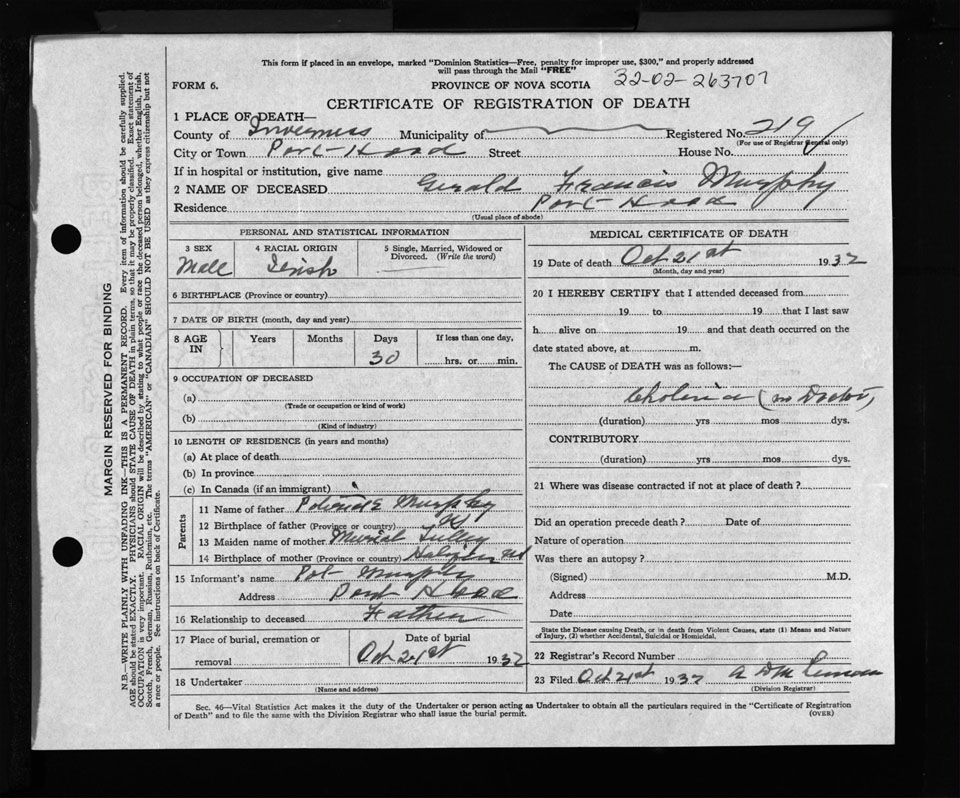 This form if placed in an envelope, marked "Dominion Statistics—Free, penalty for improper use, $300," and properly addressed
will pass through the Mail "FREE"
32-02-263707
FORM 6. PROVINCE OF NOVA SCOTIA
CERTIFICATE OF REGISTRATION OF DEATH
1 PLACE OF DEATH—
County of Inverness Municipality of Registered No. 219
(For use of Registrar General only)
City or Town Port-Hood Street House No.
If in hospital or institution, give name
2 NAME OF DECEASED Gerald Francis Murphy
Residence Port-Hood
(Usual place of abode)
PERSONAL AND STATISTICAL INFORMATION
3 SEX 4 RACIAL ORIGIN 5 Single, Married, Widowed or
Divorced. (Write the word)
Male Irish
6 BIRTHPLACE (Province or country)
7 DATE OF BIRTH (month, day and year)
8 AGE IN Years Months Days If less than one day,
30 hrs. or min.
9 OCCUPATION OF DECEASED
(a)
(Trade or occupation or kind of work)
(b)
(Kind of industry)
10 LENGTH OF RESIDENCE (in years and months)
(a) At place of death
(b) In province
(c) In Canada (if an immigrant)
Parents
11 Name of father Murphy
12 Birthplace of father (Province or country)
13 Maiden name of mother
14 Birthplace of mother (Province or country)
15 Informant's name Pat Murphy
Address Port Hood
16 Relationship to deceased Father
17 Place of burial, cremation or Date of burial
removal Oct 21st 1932
18 Undertaker
(Name and address)
MEDICAL CERTIFICATE OF DEATH
19 Date of death Oct 21st 1932
(Month, day and year)
20 I HEREBY CERTIFY that I attended deceased from
19 to 19 that I last saw
h alive on 19 and that death occurred on
date stated above, at m.
The CAUSE of DEATH was as follows:—
(no Doctor)
(duration) yrs mos dys.
CONTRIBUTORY
(duration) yrs mos dys.
21 Where was disease contracted if not at place of death?
Did an operation precede death? Date of
Nature of operation
Was there an autopsy?
(Signed) M.D.
Address
Date
State the Disease causing Death, or in death from Violent Causes, state (1) Means and Nature
of Injury, (2) whether Accidental, Suicidal or Homicidal.
22 Registrar's Record Number
23 Filed Oct 21st 1932
(Division Registrar)
Sec. 46—Vital Statistics Act makes it the duty of the Undertaker or person acting as Undertaker to obtain all the particulars required in the "Certificate of Registration
of Death" and to file the same with the Division Registrar who shall issue the burial permit. (OVER)
MARGIN RESERVED FOR BINDING
N.B.—WRITE PLAINLY WITH UNFADING INK—THIS IS A PERMANENT RECORD. Every item of information should be carefully supplied.
AGE should be stated EXACTLY. PHYSICIANS should STATE CAUSE OF DEATH in plain terms, so that it may be properly classified. Exact statement of
OCCUPATION is very important. RACIAL ORIGIN will be described by stating to what people or race the deceased person belonged, whether English, Irish,
Scotch, French, German, Russian, Ruthenian, etc. The terms "AMERICAN" or "CANADIAN" SHOULD NOT BE USED as they express citizenship but not
a race or people. See instructions on back of Certificate.